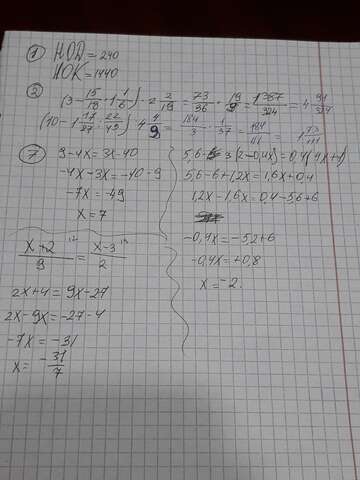 ① НОД = 240
НОК = 1440
② (3 - 15/18 + 1 1/6) · 2 2/19 = 73/36 · 19/9 = 1387/324 = 4 91/324
(10 - 1 17/27 · 22/45) · 4/9 = 184/3 · 1/37 = 184/111 = 1 73/111
⑦ 9 - 4x = 3x - 40
-4x - 3x = -40 - 9
-7x = -49
x = 7
(x+2)/9 = (x-3)/2
2x + 4 = 9x - 27
2x - 9x = -27 - 4
-7x = -31
x = -31/7
5,6 - 3(2 - 0,4x) = 0,4(4x + 1)
5,6 - 6 + 1,2x = 1,6x + 0,4
1,2x - 1,6x = 0,4 - 5,6 + 6
-0,4x = -5,2 + 6
-0,4x = +0,8
x = -2.